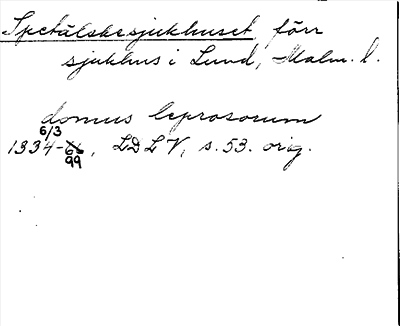 Spetälskesjukhuset, förr
sjukhus i Lund, Malm. l.
domus leprosorum
6/3
1334-66, LDL V, s. 53. orig.
99